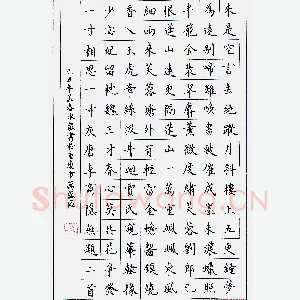 來是空言去絕蹤月斜樓上五更鐘夢
為遠別啼難喚書被催成墨未濃蠟照
半籠金翡翠麝薰微度繡芙蓉劉郎已
恨蓬山遠更隔蓬山一萬重颯颯東風
細雨來芙蓉塘外有輕雷金蟾齧鎖燒
香入玉虎牽絲汲井回賈氏窺簾韓掾
少宓妃留枕魏王才春心莫共花爭發
一寸相思一寸灰唐李商隱無題二首